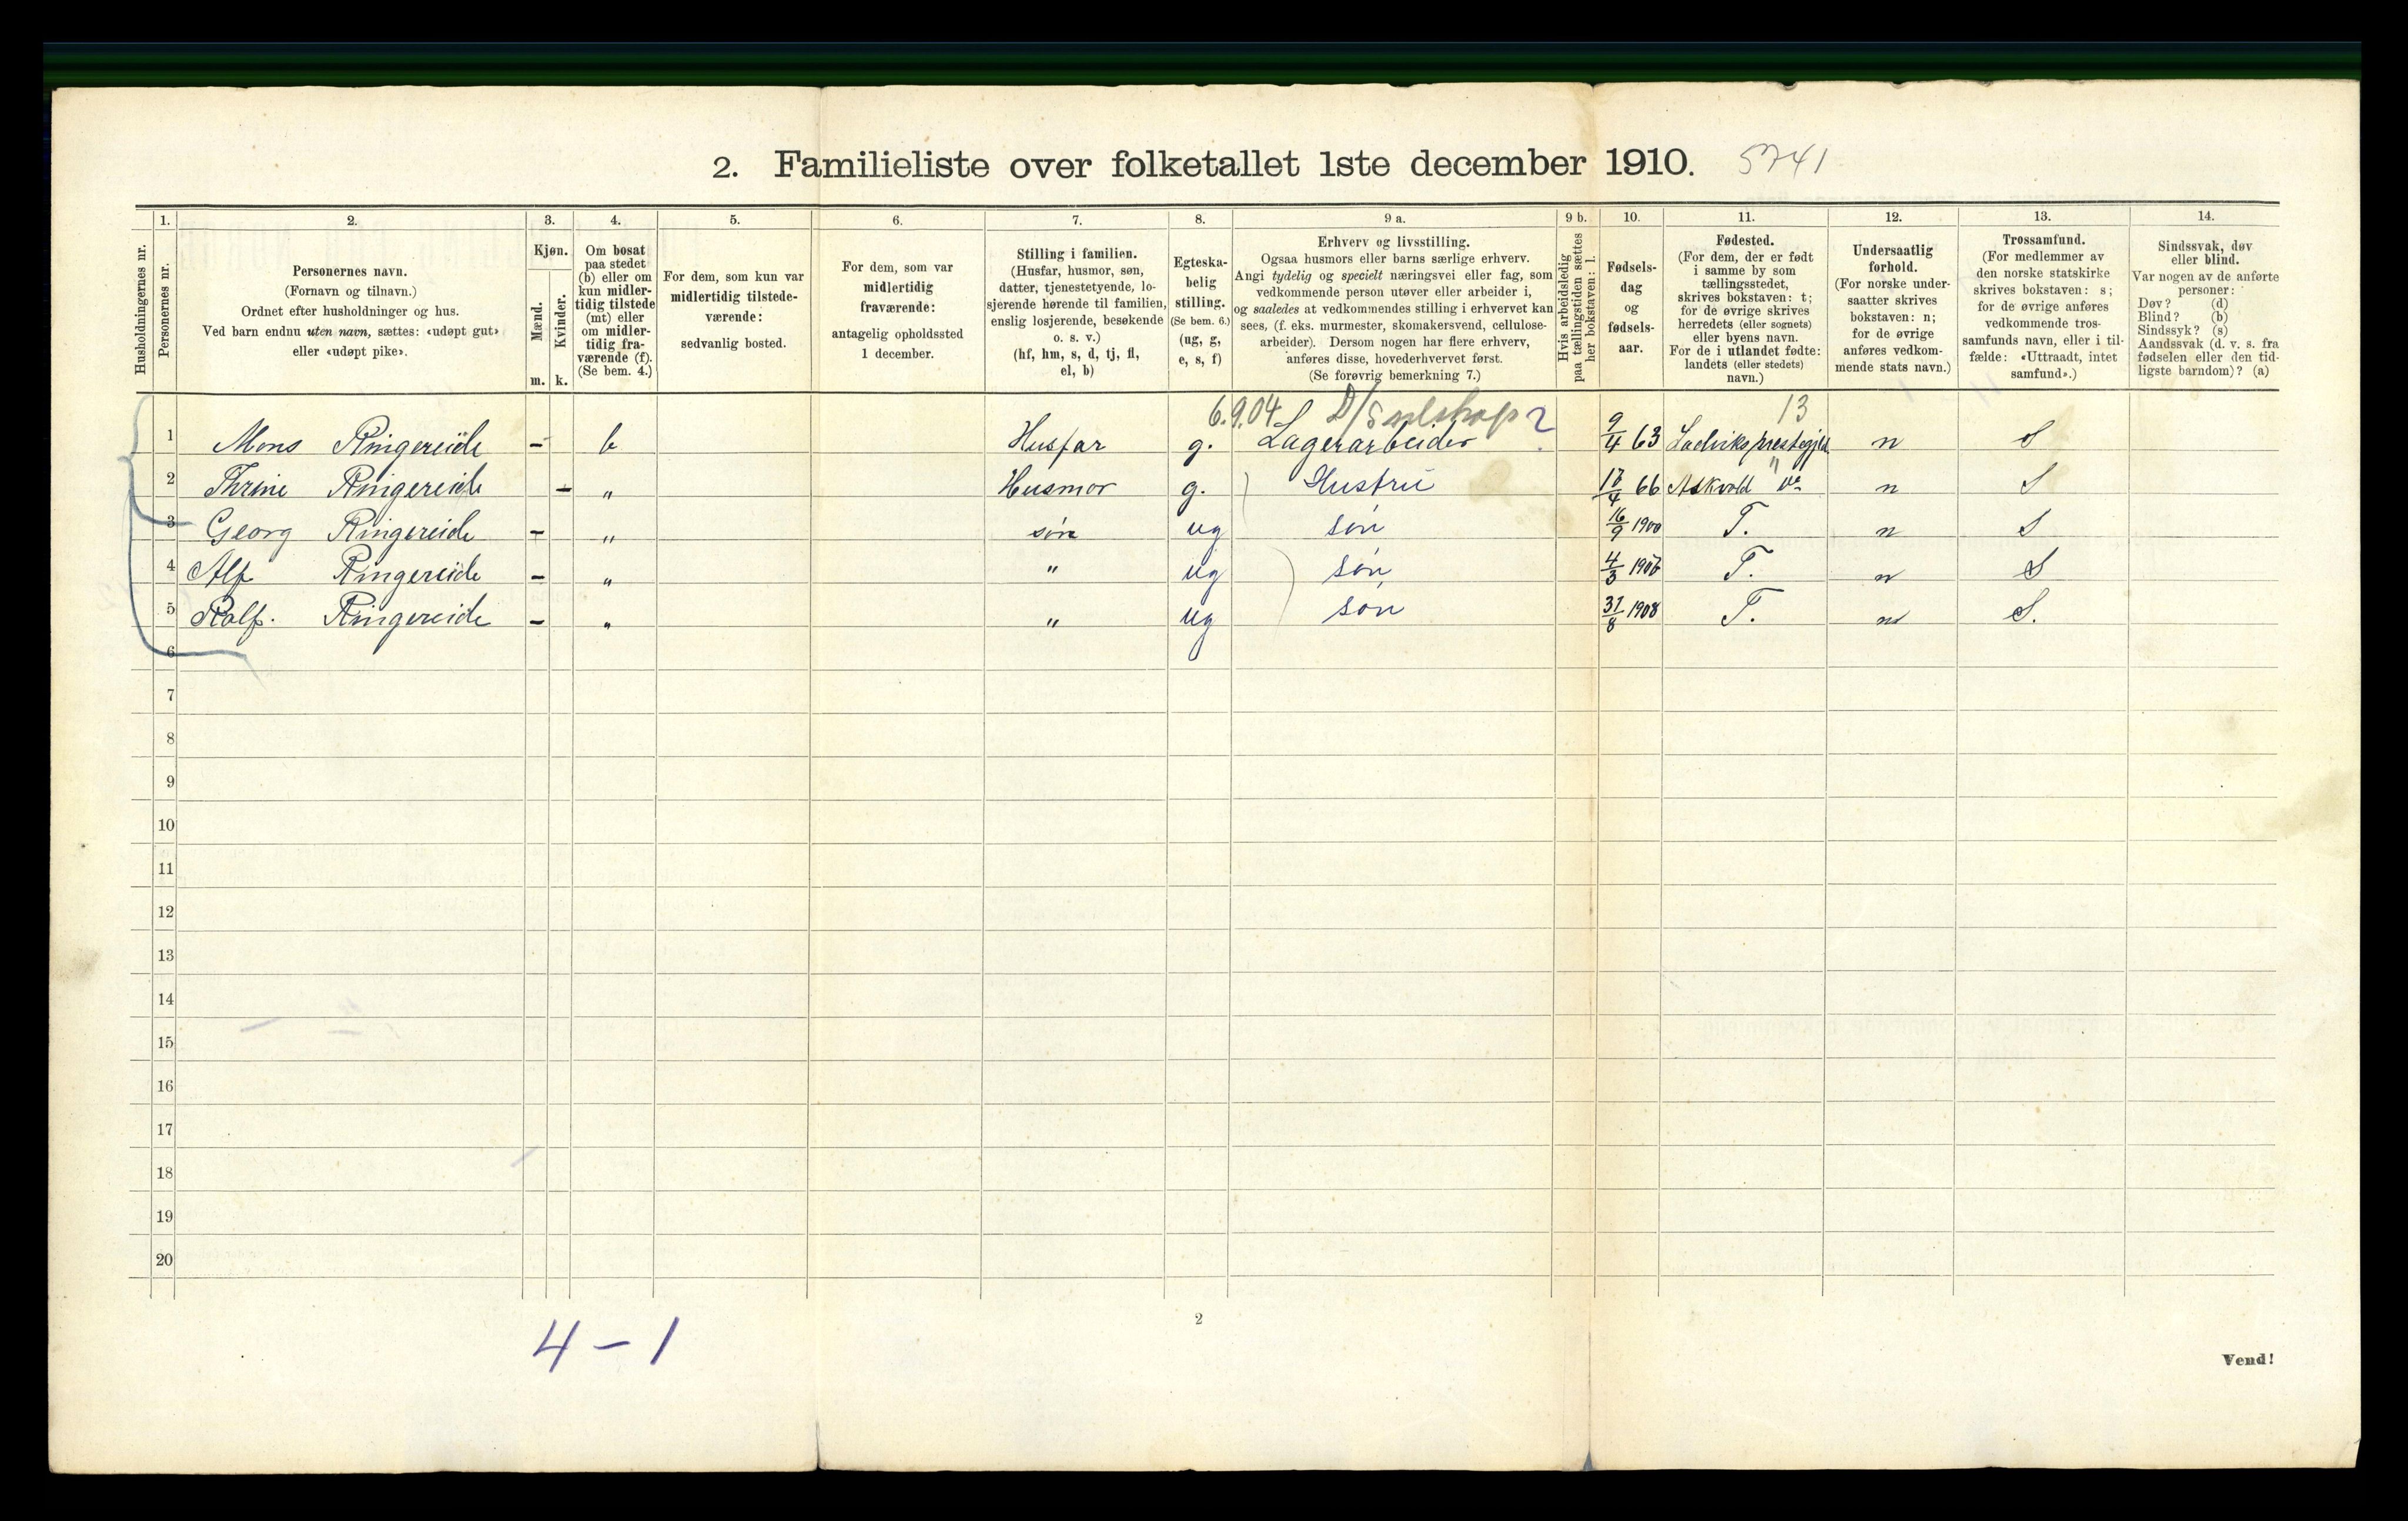 2. Familieliste over folketallet 1ste december 1910. 5741
Husholdningernes nr.
1.
Personernes nr.
2.
Personernes navn.
(Fornavn og tilnavn.)
Ordnet efter husholdninger og hus.
Ved barn endnu uten navn, sættes: «udøpt gut»
eller «udøpt pike».
3.
Kjøn.
Mænd.
Kvinder.
m. k.
4.
Om bosat
paa stedet
(b) eller om
kun midler-
tidig tilstede
(mt) eller
om midler-
tidig fra-
værende (f).
(Se bem. 4.)
5.
For dem, som kun var
midlertidig tilstede-
værende:
sedvanlig bosted.
6.
For dem, som var
midlertidig
fraværende:
antagelig opholdssted
1 december.
7.
Stilling i familien.
(Husfar, husmor, søn,
datter, tjenestetyende, lo-
sjerende hørende til familien,
enslig losjerende, besøkende
o. s. v.)
(hf, hm, s, d, tj, fl,
el, b)
8.
Egteska-
belig
stilling.
(Se bem. 6.)
(ug, g,
e, s, f)
9 a.
Erhverv og livsstilling.
Ogsaa husmors eller barns særlige erhverv.
Angi tydelig og specielt næringsvei eller fag, som
vedkommende person utøver eller arbeider i,
og saaledes at vedkommendes stilling i erhvervet kan
sees, (f. eks. murmester, skomakersvend, cellulose-
arbeider). Dersom nogen har flere erhverv,
anføres disse, hovederhvervet først.
(Se forøvrig bemerkning 7.)
9 b.
Hvis arbeidsledig
paa tællingstiden sættes
her bokstaven: l.
10.
Fødsels-
dag
og
fødsels-
aar.
11.
Fødested.
(For dem, der er født
i samme by som
tællingsstedet,
skrives bokstaven: t;
for de øvrige skrives
herredets (eller sognets)
eller byens navn.
For de i utlandet fødte:
landets (eller stedets)
navn.)
12.
Undersaatlig
forhold.
(For norske under-
saatter skrives
bokstaven: n;
for de øvrige
anføres vedkom-
mende stats navn.)
13.
Trossamfund.
(For medlemmer av
den norske statskirke
skrives bokstaven: s;
for de øvrige anføres
vedkommende tros-
samfunds navn, eller i til-
fælde: «Uttraadt, intet
samfund».)
14.
Sindssvak, døv
eller blind.
Var nogen av de anførte
personer:
Døv? (d)
Blind? (b)
Sindssyk? (s)
Aandssvak (d. v. s. fra
fødselen eller den tid-
ligste barndom)? (a)
6.9.04 D/Snlskap ? 13
1 Mons Ringereide - b Husfar g. Lagerarbeider 9/4 63 Ladviks prestegjeld n S
2 Thrine Ringereide - " Husmor g. Hustru 4 66 Askvold " n S
3 Georg Ringereide - " søn ug søn 16/9 1900 T. n S
4 Alf Ringereide - " " ug søn 4/3 T. n S
5 Ralf. Ringereide - " " ug søn 31/8 1908 T. n S.
6
7
8
9
10
11
12
13
14
15
16
17
18
19
20
2
4 - 1
Vend!